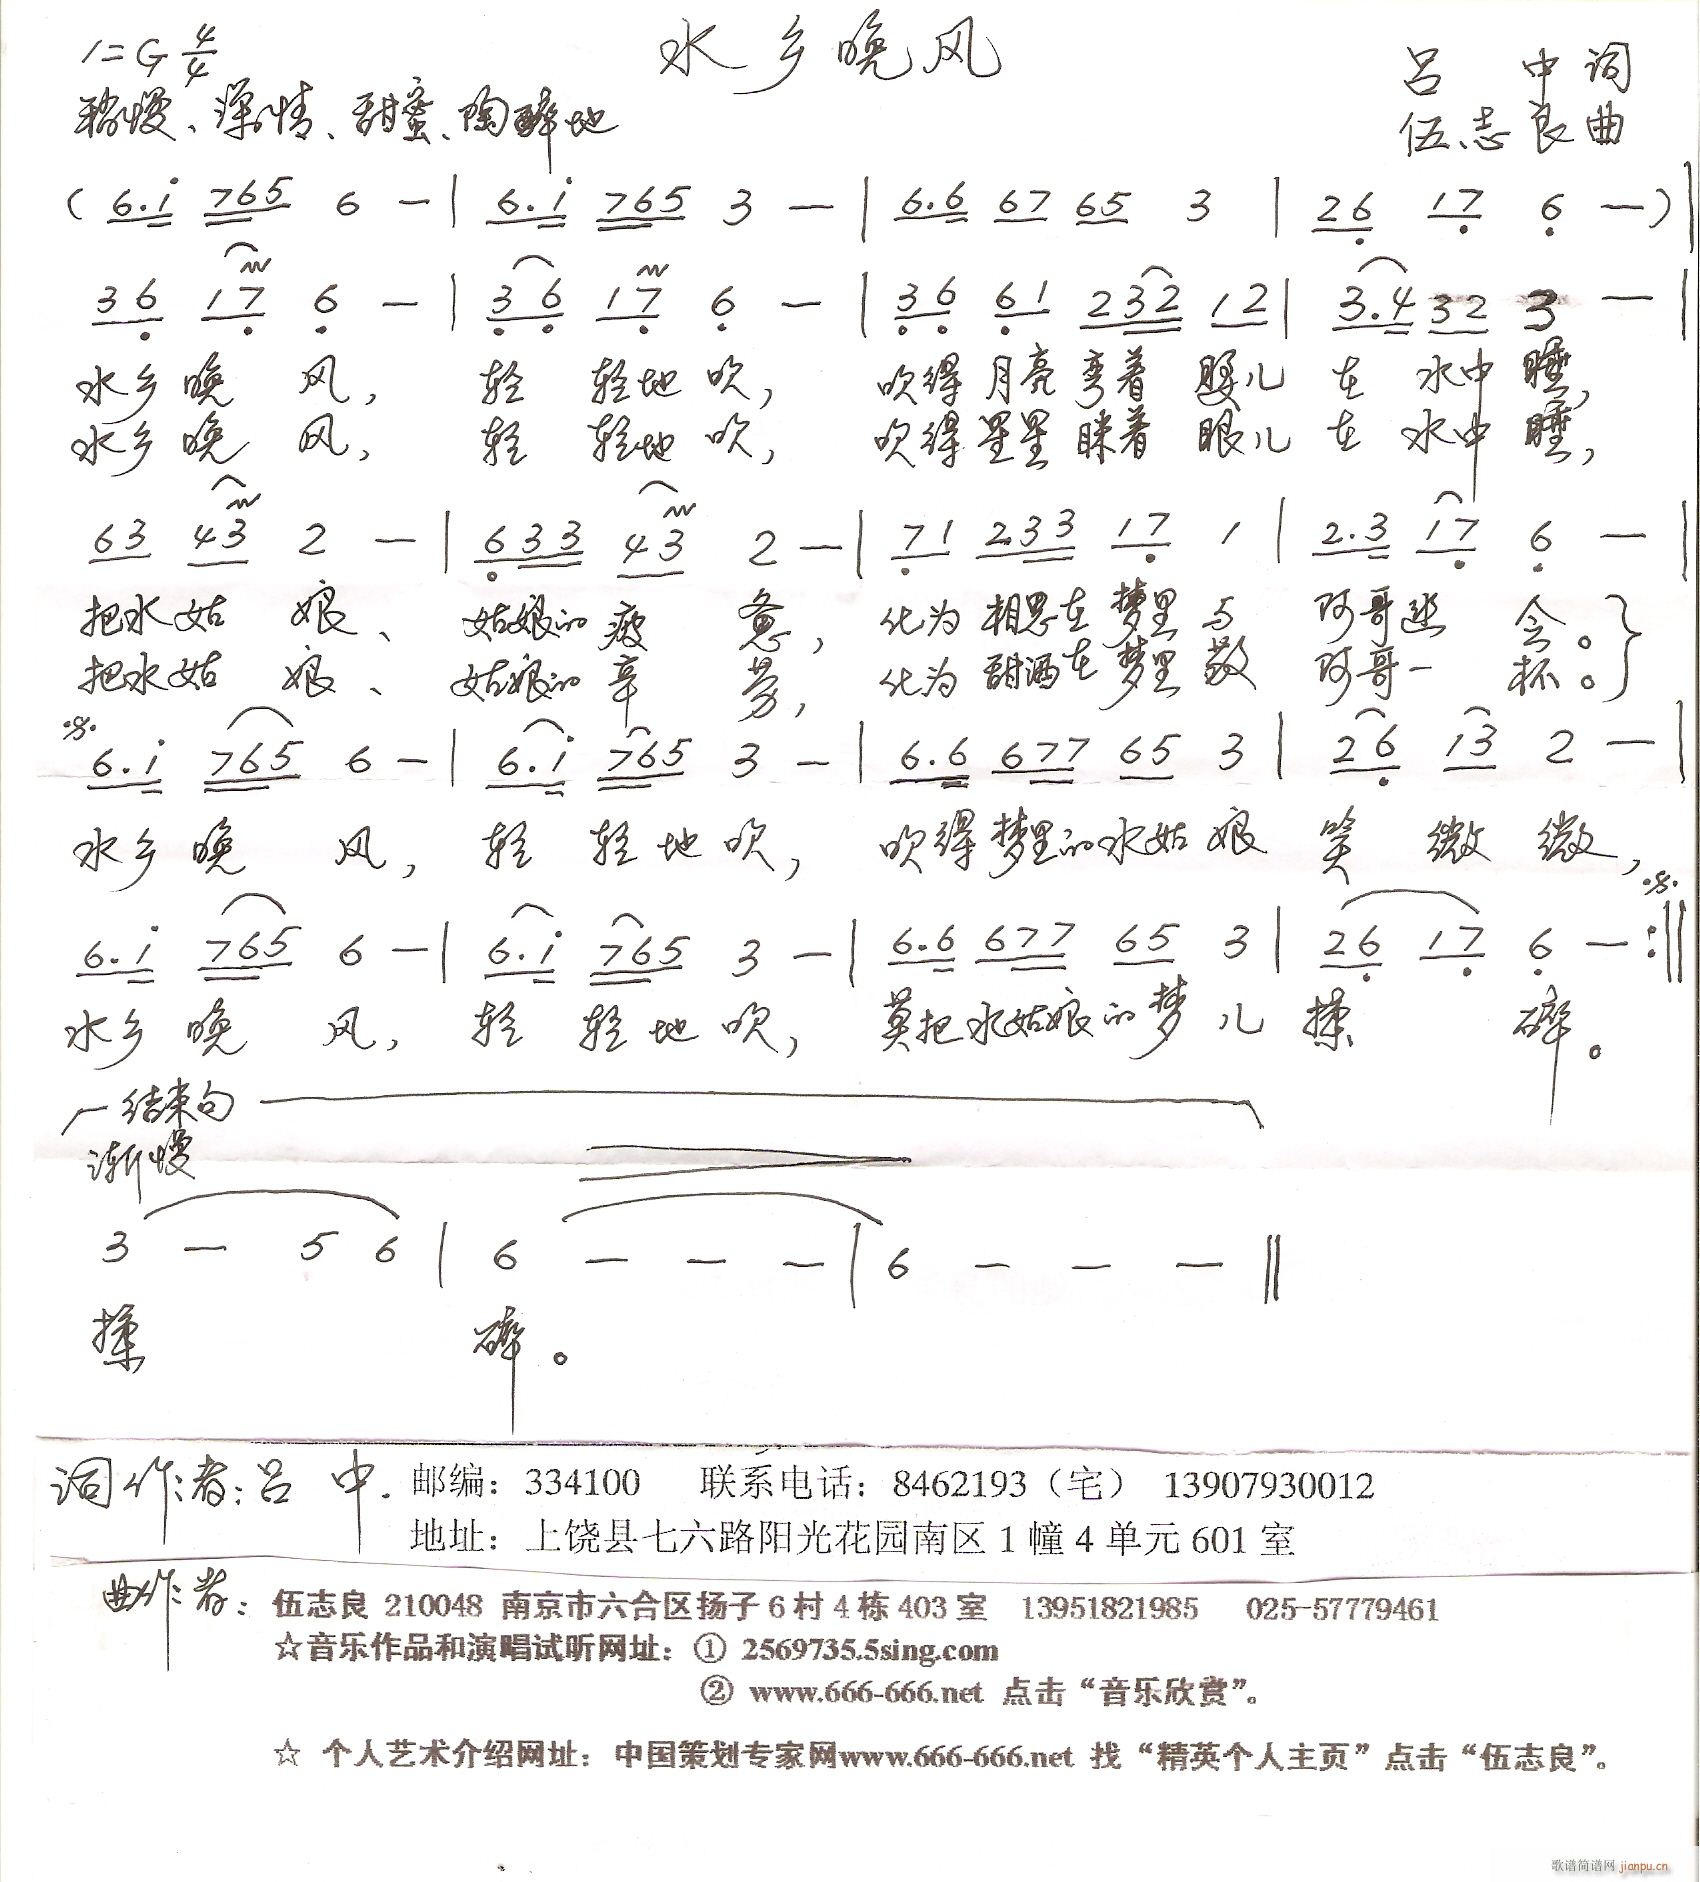 水乡晚风
1=G 4/4
吕 中 词
稍慢、深情、甜蜜、陶醉地
伍志良 曲
( 6.i 765 6 — | 6.i 765 3 — | 6.6 67 65 3 | 26 17 6 — ) |
36 17 6 — | 36 17 6 — | 36 61 232 12 | 3.4 32 3 — |
水乡晚 风, 轻 轻地吹, 吹得月亮弯着 腰儿 在 水中睡,
水乡晚 风, 轻 轻地吹, 吹得星星眯着 眼儿 在 水中睡,
63 43 2 — | 633 43 2 — | 71 233 17 1 | 2.3 17 6 — |
把水姑 娘、 姑娘的疲 惫, 化为相思在梦里与 阿哥幽 会。
把水姑 娘、 姑娘的辛 劳, 化为甜酒在梦里敬 阿哥一 杯。
6.i 765 6 — | 6.i 765 3 — | 6.6 677 65 3 | 26 13 2 — |
水乡晚 风, 轻 轻地吹, 吹得梦里的水姑娘 笑 微 微,
6.i 765 6 — | 6.i 765 3 — | 6.6 677 65 3 | 26 17 6 — :||
水乡晚 风, 轻 轻地吹, 莫把水姑娘的梦儿 揉 碎。
结束句
渐慢
3 — 5 6 | 6 — — — | 6 — — — ||
揉 碎。
词作者:吕 中. 邮编：334100 联系电话：8462193（宅） 13907930012
地址：上饶县七六路阳光花园南区1幢4单元601室
曲作者: 伍志良 210048 南京市六合区扬子6村4栋403室 13951821985 025-57779461
☆音乐作品和演唱试听网址：① 2569735.5sing.com
② www.666-666.net 点击“音乐欣赏”。
☆ 个人艺术介绍网址：中国策划专家网www.666-666.net 找“精英个人主页”点击“伍志良”。
歌谱简谱网 jianpu.cn